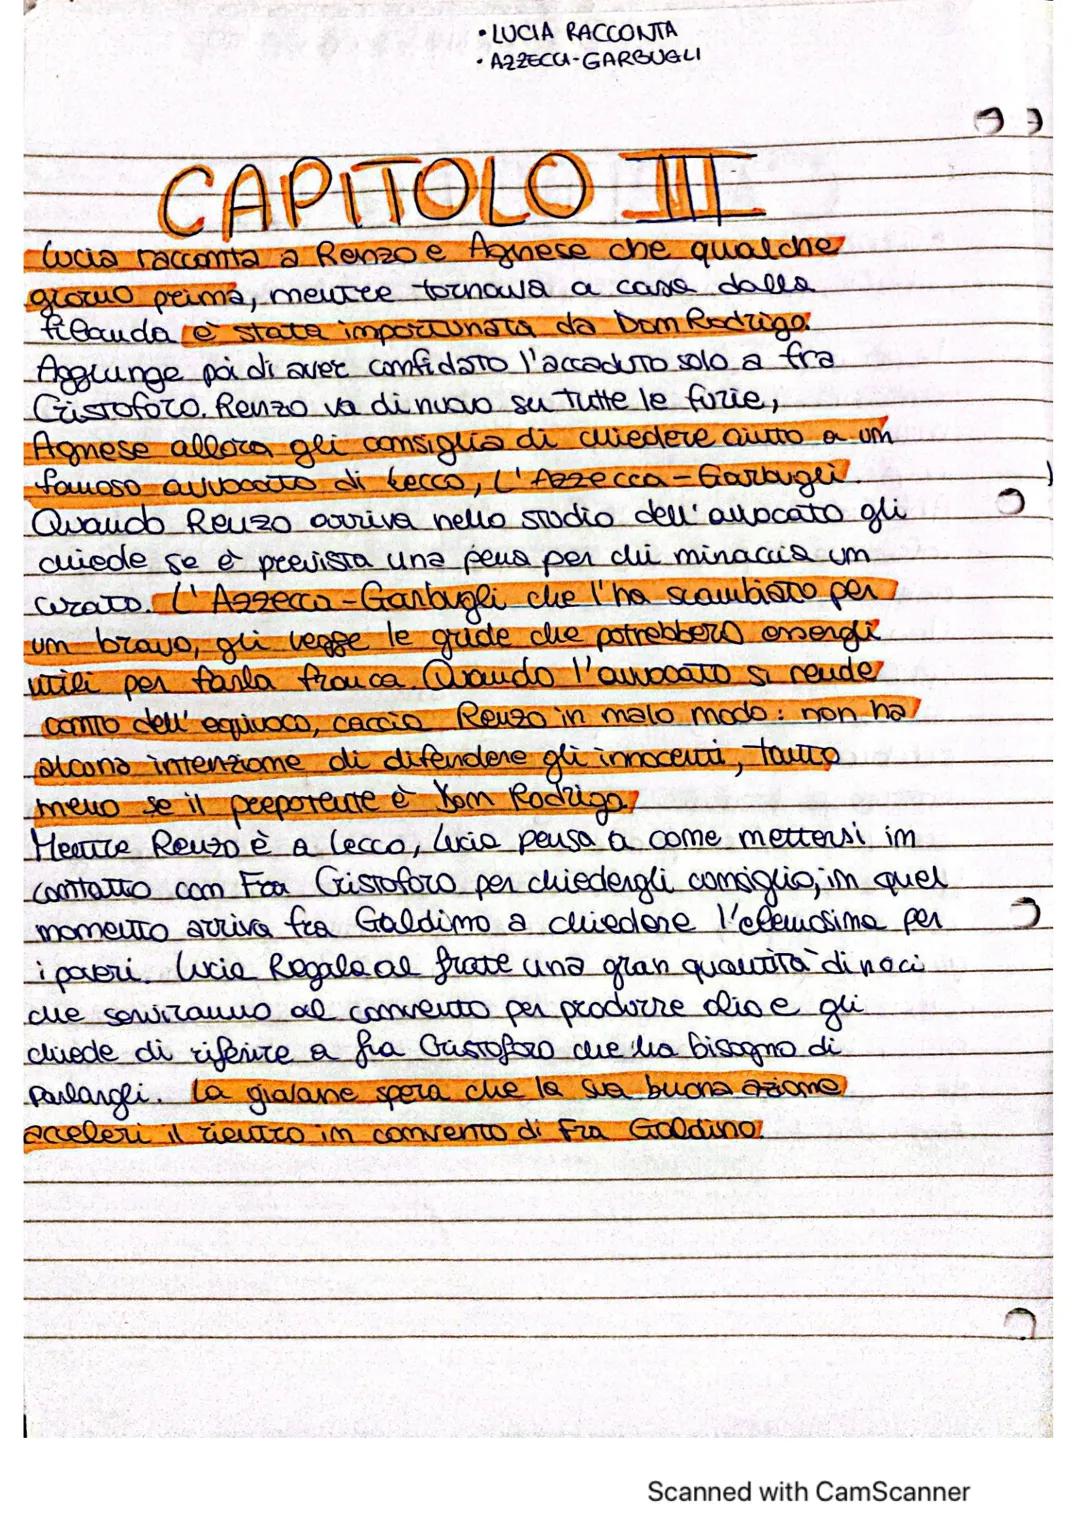 • LUCIA RACCONTA
• AZZECCA-GARBUGLI
CAPITOLO III
Lucia racconta a Renzo e Agnese che qualche
giorno prima, mentre tornava a casa dalla
filanda è stata importunata da Don Rodrigo.
Aggiunge poi di aver confidato l'accaduto solo a fra
Cristoforo. Renzo va di nuovo su tutte le furie,
Agnese allora gli consiglia di chiedere aiuto a un
famoso avvocato di Lecco, L'Azzecca-Garbugli.
Quando Renzo arriva nello studio dell'avvocato gli
chiede se è prevista una pena per chi minaccia un
curato. L'Azzecca-Garbugli che l'ha scambiato per
un bravo, gli legge le gride che potrebbero essergli
utili per farla franca. Quando l'avvocato si rende
conto dell'equivoco, caccia Renzo in malo modo: non ha
alcuna intenzione di difendere gli innocenti, tanto
meno se il prepotente è Don Rodrigo.
Mentre Renzo è a Lecco, Lucia pensa a come mettersi in
contatto con Fra Cristoforo per chiedergli consiglio, in quel
momento arriva fra Galdino a chiedere l'elemosina per
i poveri. Lucia Regala al frate una gran quantità di noci
che serviranno al convento per produrre olio e gli
chiede di riferire a fra Cristoforo che ha bisogno di
parlargli. La giovane spera che la sua buona azione
acceleri il rientro in convento di Fra Galdino.
Scanned with CamScanner